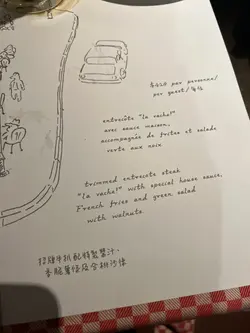 $428 par personne/
per guest/每位
entrecôte "la vache!"
avec sauce maison,
accompagnée de frites et salade
verte aux noix
trimmed entrecote steak
"la vache!" with special house sauce,
French fries and green salad
with walnuts
招牌牛扒配特製醬汁、
香脆薯條及合桃沙律